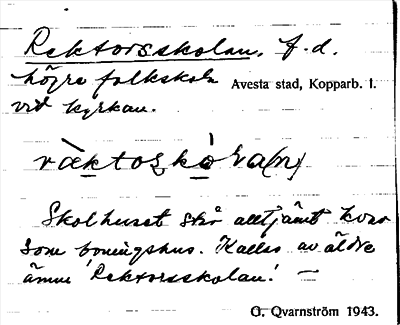 Rektorsskolan, f.d.
högre folkskola Avesta stad, Kopparb. l.
vid kyrkan.
ræ̀ktoʂkòla(n)
Skolhuset står alltjämt kvar
som boningshus. Kallas av äldre
ännu 'Rektorsskolan'. —
G. Qvarnström 1943.